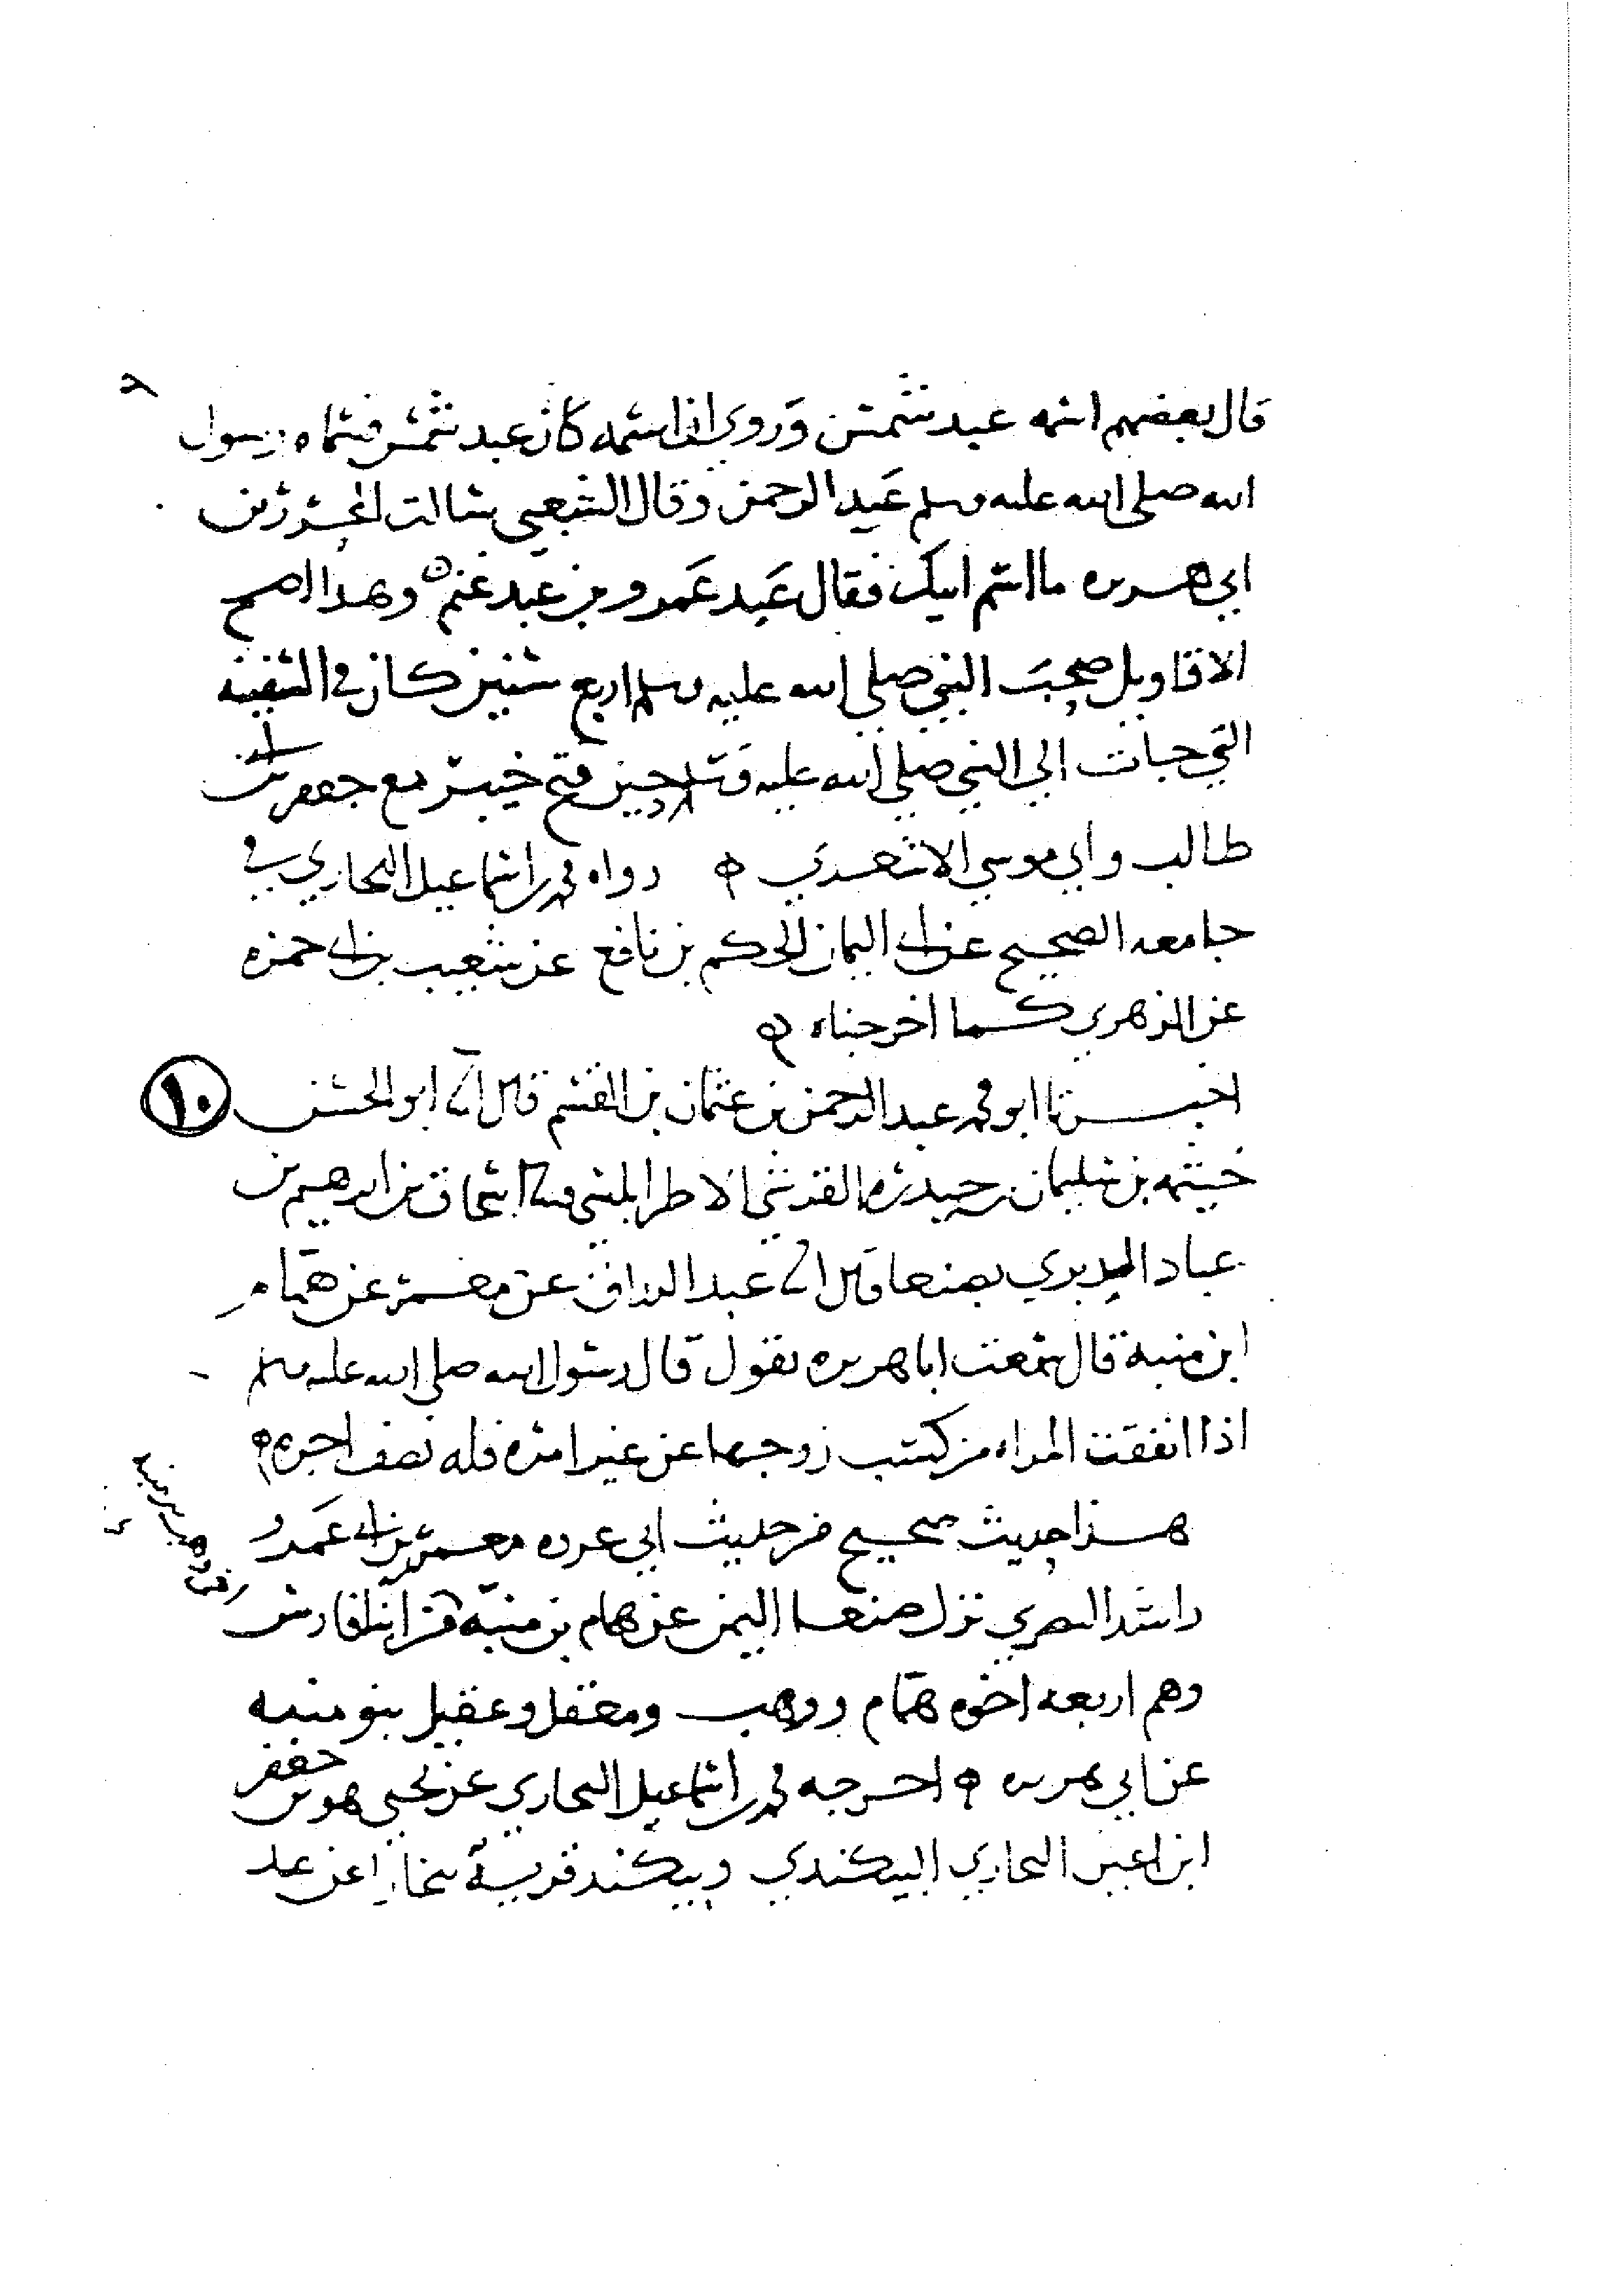 قال بعضهم اسمه عبد شمس وروي ان اسمه كان عبد شمس فسماه رسول
الله صلى الله عليه وسلم عبد الرحمن وقال الشعبي سالت المحرر بن
ابي هريره ما اسم ابيك فقال عبد عمرو بن عبد غنم وهذا اصح
الاقاويل صحب النبي صلى الله عليه وسلم اربع سنين كان في السفينه
التي جات الى النبي صلى الله عليه وسلم حين فتح خيبر مع جعفر بن ابي
طالب وابي موسى الاشعري ه رواه محمد بن اسماعيل البخاري في
جامعه الصحيح عن ابي اليمان الحكم بن نافع عن شعيب بن ابي حمزه
عن الزهري كما اخرجناه ه
اخبرنا ابو محمد عبد الرحمن بن عثمان بن القسم قال انا ابو الحسن
١٠
خيثمه بن سليمان بن حيدره القرشي الاطرابلسي نا اسحاق بن ابرهيم بن
عباد الدبري بصنعا قال انا عبد الرزاق عن معمر عن همام
ابن منبه قال سمعت ابا هريره يقول قال رسول الله صلى الله عليه وسلم
اذا انفقت المراه من كسب زوجها عن غير امره فله نصف اجره ه
هذا حديث صحيح من حديث ابي عروه معمر بن ابي عمرو
راشد البصري نزل صنعا اليمن عن همام بن منبه من ابنا فارس
وهم اربعه اخوه همام ووهب ومعقل وعقيل بنو منبه
عن ابي هريره ه اخرجه محمد بن اسماعيل البخاري عن يحيى هو بن جعفر
ابن اعين البخاري البيكندي وبيكند قرية ببخارا عن عبد